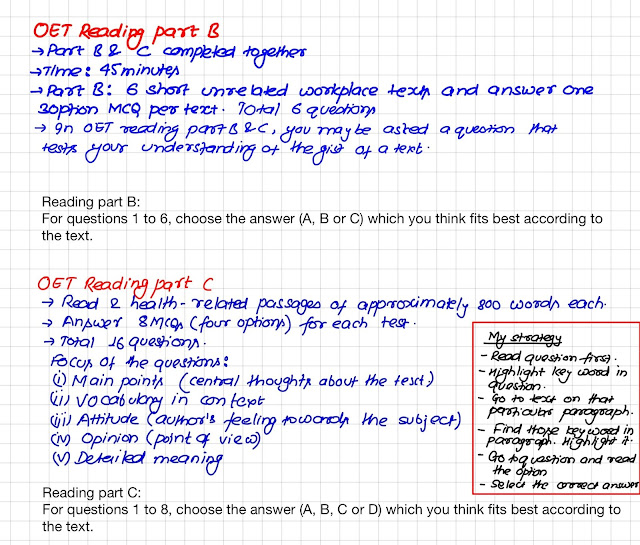 OET Reading part B
→ Part B & C completed together
→ Time: 45 minutes
→ Part B: 6 short unrelated workplace texts and answer one
3option MCQ per text. Total 6 questions
→ In OET reading part B & C, you may be asked a question that
tests your understanding of the gist of a text.
Reading part B:
For questions 1 to 6, choose the answer (A, B or C) which you think fits best according to
the text.
OET Reading part C
→ Read 2 health-related passages of approximately 800 words each.
→ Answer 8 MCQs (four options) for each test.
→ Total 16 questions.
Focus of the questions:
(i) Main points (central thoughts about the test)
(ii) Vocabulary in context
(iii) Attitude (author's feeling towards the subject)
(iv) Opinion (point of view)
(v) Detailed meaning
My strategy
- Read question first.
- Highlight key word in
question.
- Go to text on that
particular paragraph.
- Find those keyword in
paragraph. Highlight it.
- Go to question and read
the option
- Select the correct answer
Reading part C:
For questions 1 to 8, choose the answer (A, B, C or D) which you think fits best according to
the text.